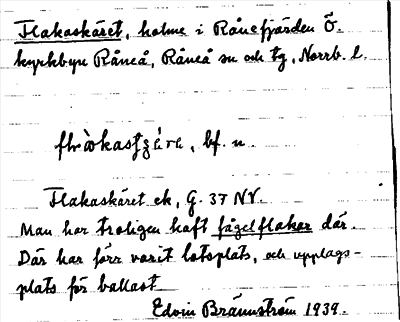 Flakaskäret, holme i Rånefjärden Ö.
kyrkbyn Råneå, Råneå sn och tg, Norrb. l.
bf. n.
Flakaskäret ek, G. 37 NV.
Man har troligen haft fågelflakar där.
Där har förr varit lotsplats, och upplags-
plats för ballast
Edvin Brännström 1939.